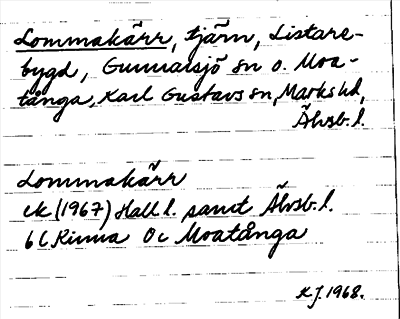 Lommakärr, tjärn, Listare-
bygd, Gunnarsjö sn o. Moa-
tånga, Karl Gustavs sn, Marks hd,
Älvsb. l.
Lommakärr
ek (1967) Hall l. samt Älvsb. l.
6 C Kinna 0 c Moatånga
KJ. 1968.